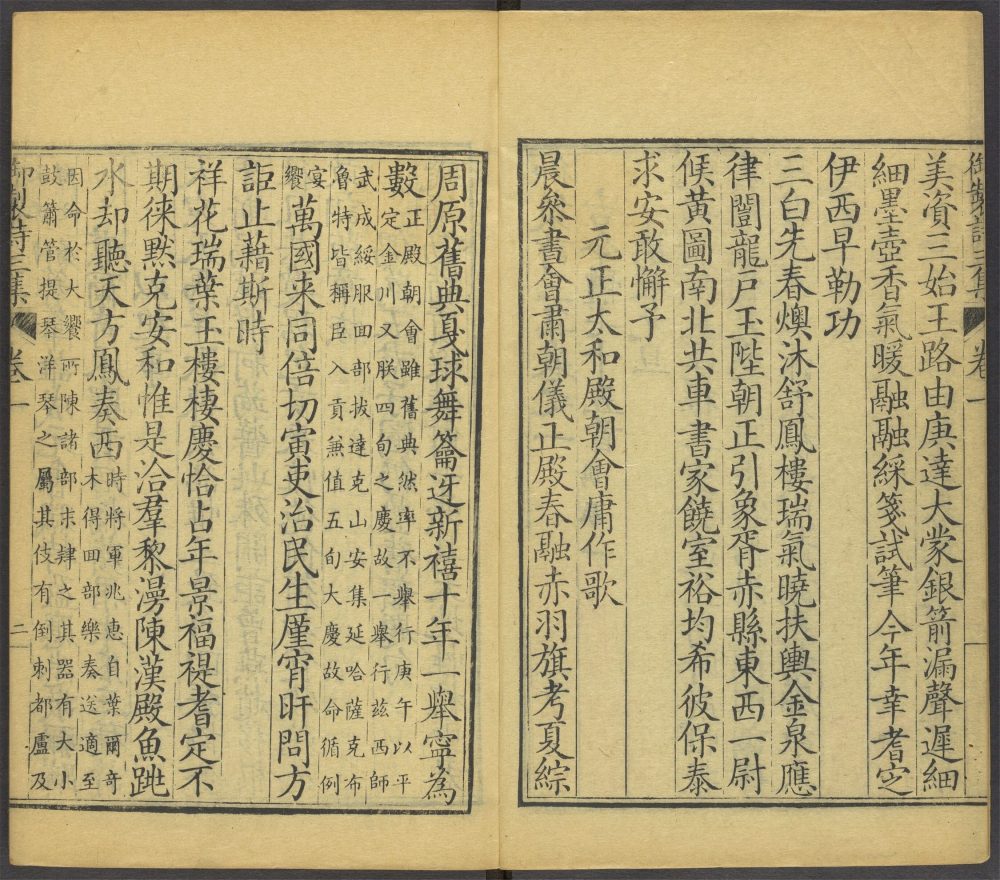 美資三始玉路由庚達大蒙銀箭漏聲遲細
細墨壺香氣暖融融綵箋試筆今年幸耆定
伊西早勒功
三白先春燠沐舒鳳樓瑞氣曉扶輿金泉應
律闓龍戸玉陛朝正引象胥赤縣東西一尉
候黄圖南北共車書家饒室裕均希彼保泰
求安敢懈予
元正太和殿朝會庸作歌
晨參書會肅朝儀正殿春融赤羽旗考夏綜
周原舊典戛球舞籥迓新禧十年一舉寧為
數正殿朝會雖舊典然率不舉行庚午以平
定金川又朕四旬之慶故一舉行兹西師
武成綏服回部拔達克山安集延哈薩克布
魯特皆稱臣入貢兼值五旬大慶故命循例
宴
饗萬國来同倍切寅吏治民生厪宵旰問方
詎止藉斯時
祥花瑞葉玉樓棲慶恰占年景福禔耆定不
期徠黙克安和惟是洽羣黎漫陳漢殿魚跳
水却聽天方鳳奏西時將軍兆惠自葉爾竒
木得回部樂奏送適至
因命於大饗所陳諸部末肄之其器有大小
鼓簫管提琴洋琴之屬其伎有倒刺都盧及
御製詩三集
卷一
二